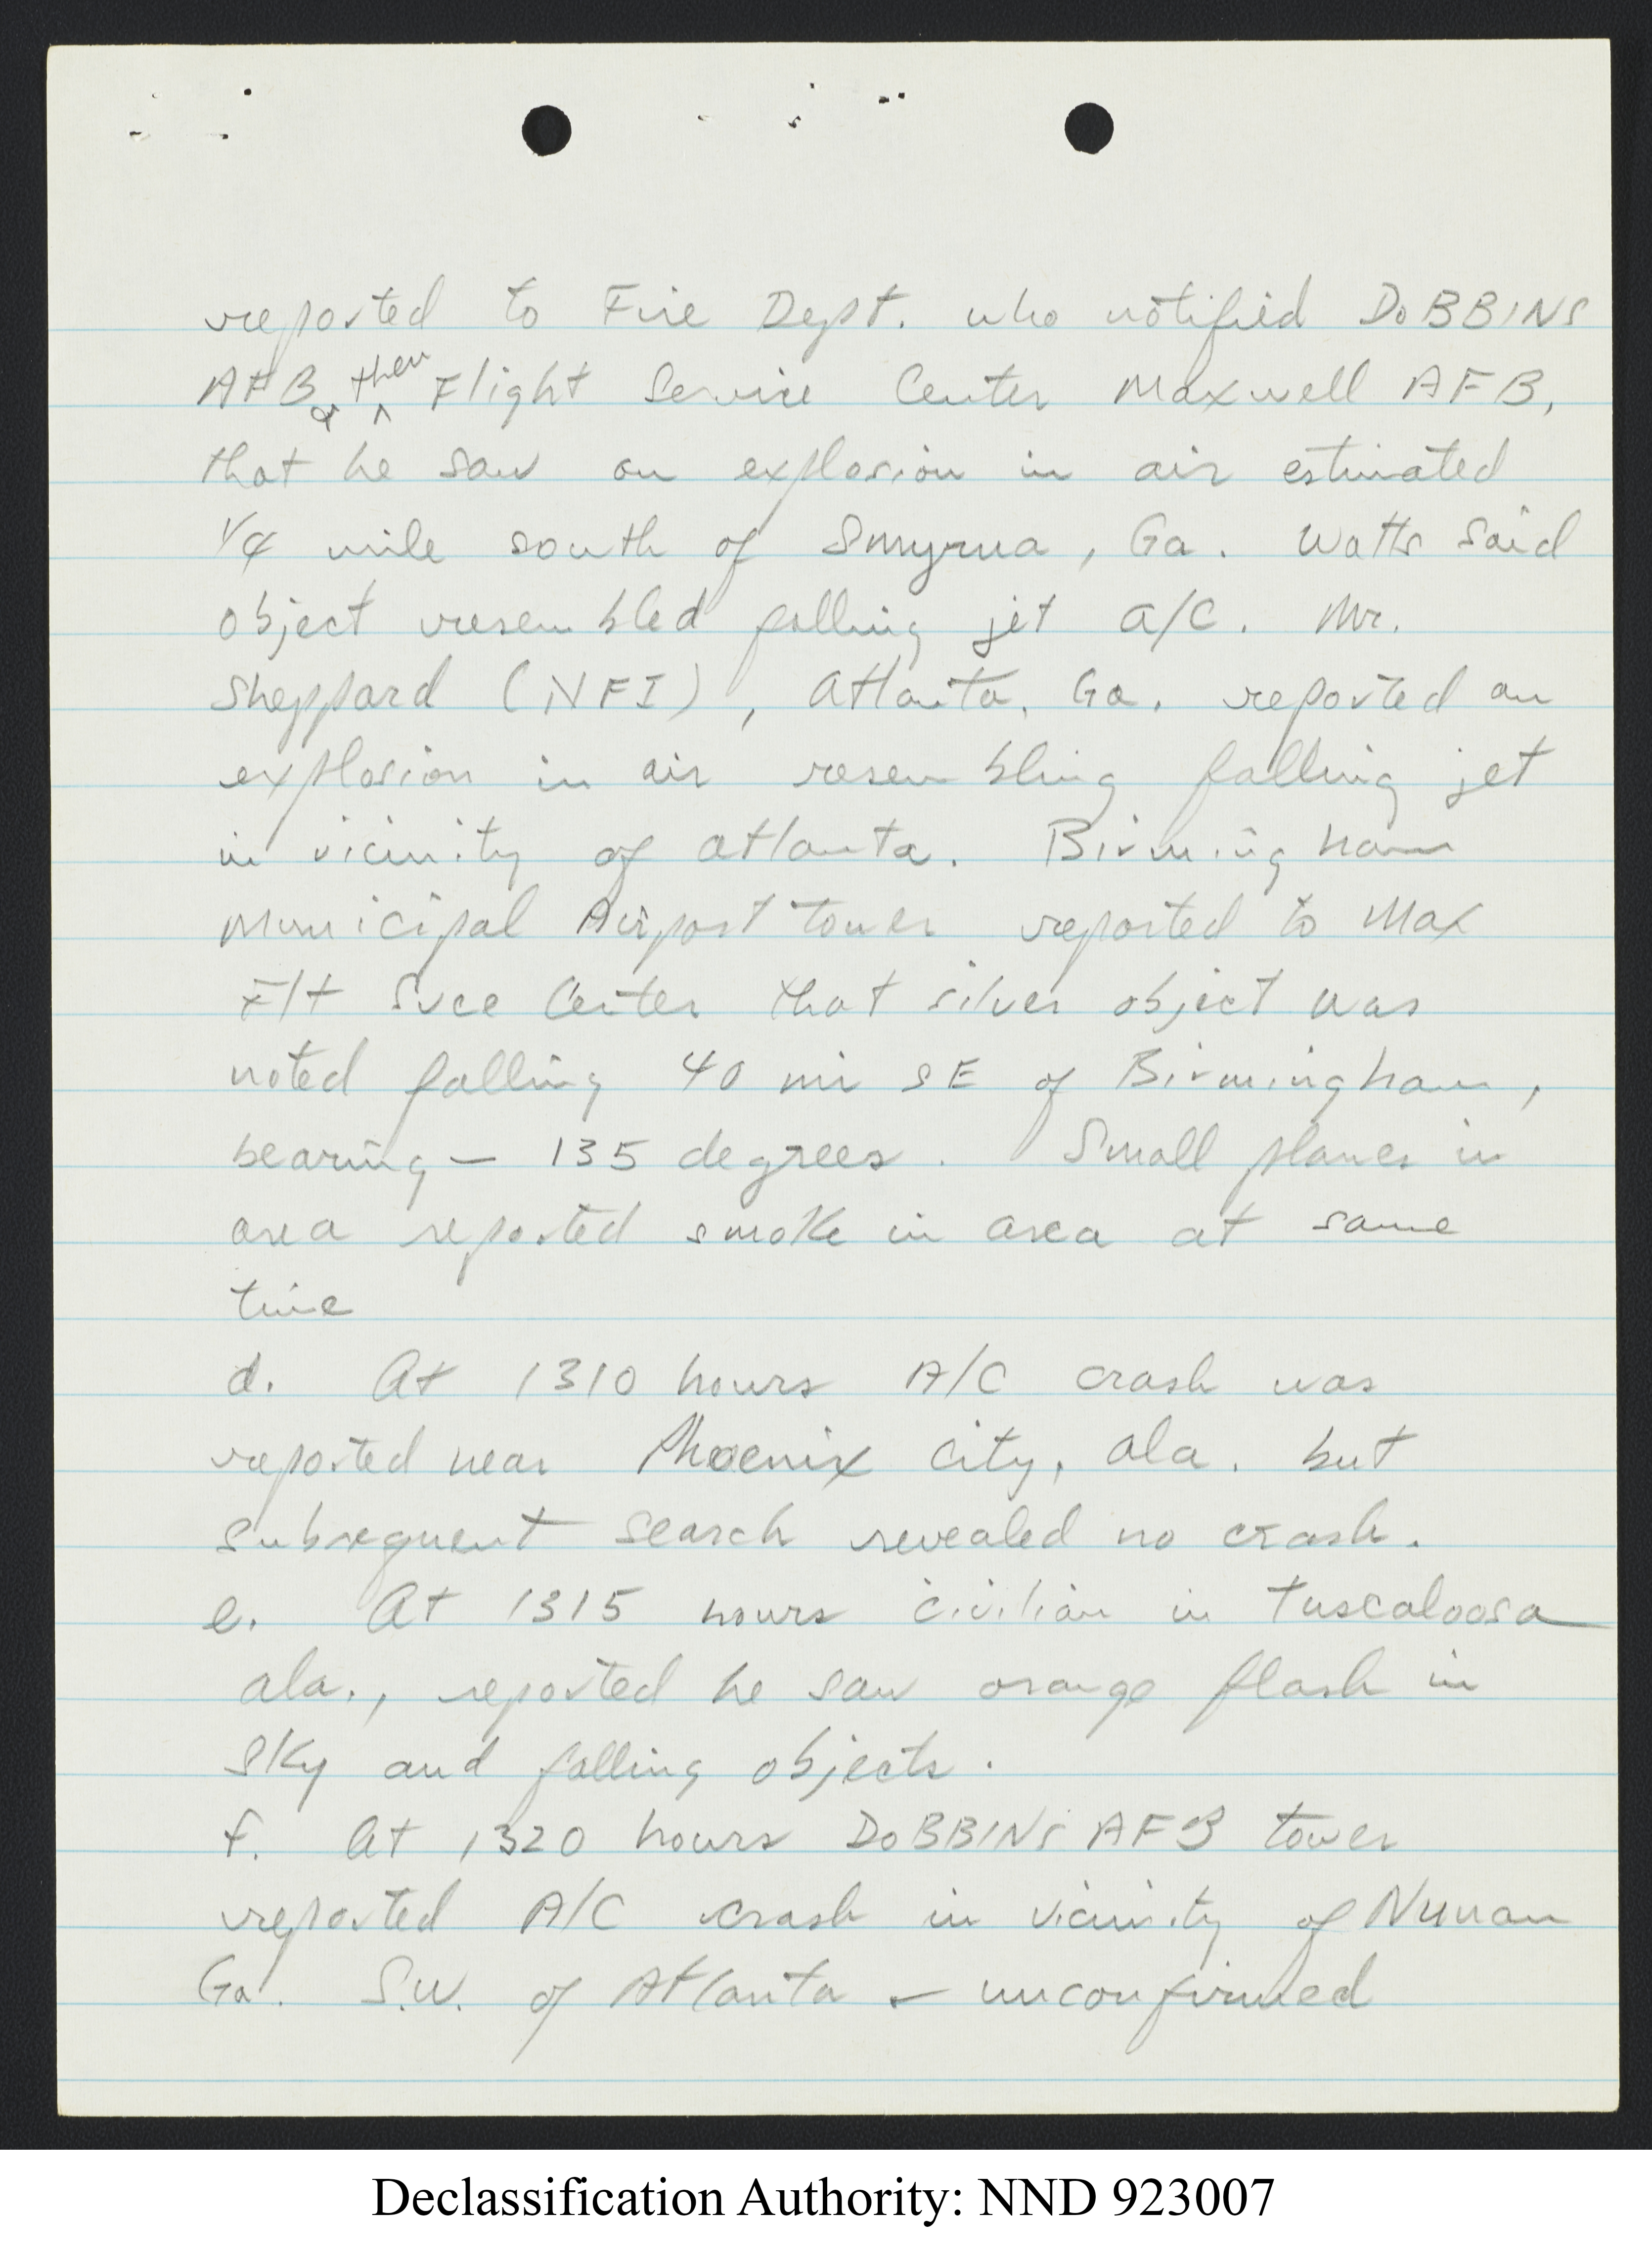 reported to Fire Dept. who notified DOBBINS
AFB & then Flight Service Center Maxwell AFB,
that he saw an explosion in air estimated
1/4 mile south of Smyrna, Ga. Watts said
object resembled falling jet a/c. Mr.
Sheppard (NFI), Atlanta, Ga. reported an
explosion in air resembling falling jet
in vicinity of Atlanta. Birmingham
Municipal Airport tower reported to Max
Flt Svce Center that silver object was
noted falling 40 mi SE of Birmingham,
bearing – 135 degrees. Small planes in
area reported smoke in area at same
time
d. At 1310 hours A/C crash was
reported near Phoenix City, Ala. but
subsequent search revealed no crash.
e. At 1315 hours civilian in Tuscaloosa
Ala., reported he saw orange flash in
sky and falling objects.
f. At 1320 hours DOBBINS AFB tower
reported A/C crash in vicinity of Nunan
Ga. S.W. of Atlanta – unconfirmed
Declassification Authority: NND 923007